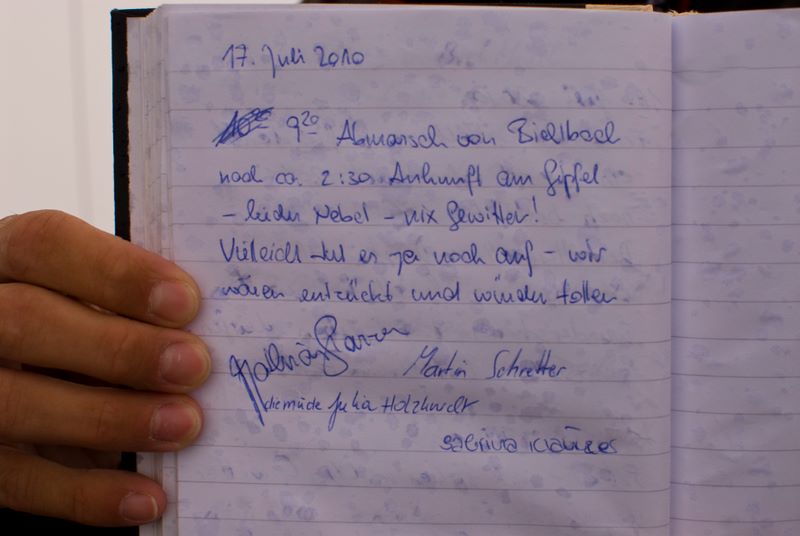 17. Juli 2010
9 20 Abmarsch von Bichlbach
nach ca. 2:30 Ankunft am Gipfel
- leider Nebel - nix Gewitter!
Vielleich tut es ja noch auf - wir
wären entzückt und würden tollen
Martin Schretter
die müde Julia Holzknecht
Sabrina